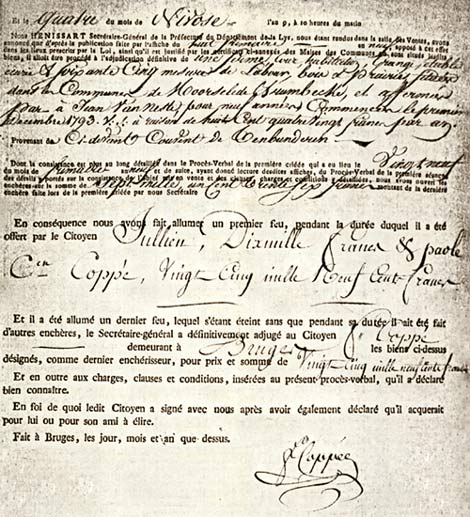 Et le Quatre du mois de Nivose l'an 9, à 10 heures du matin
Nous HENISSART Secrétaire-Général de la Préfecture du Département de la Lys, nous étant rendus dans la salle des Ventes, avons
annoncé que d'après la publication faite par l'affiche du huit frimaire an neuf apposé à cet effet
dans les lieux prescrits par la Loi, ainsi qu'il est justifié par les certificats ci-annexés des Maires des Communes où sont situés lesdits
biens, il alloit être procédé à l'adjudication définitive de Une ferme avec habitation, Grange, étable
écurie & soixante Cinq mesures de Labour, bois & prairies située
dans les Communes de Moorslede et affermée
par à Jean Van pour neuf années Commencées le premier
décembre 1793. V. S. à raison de huit Cent quatre Vingt francs par an.
Provenant du Ci-devant Couvent de
Dont la consistance est plus au long détaillée dans le Procès-Verbal de la première criée qui a eu lieu le Vingt neuf
du mois de frimaire an neuf et de suite, ayant donné lecture desdites affiches, du Procès-Verbal de la première séance
des détails portés sur la consistance de l'objet mis en vente et des charges, clauses et conditions y détaillées, nous avons ouvert les
enchères sur la somme de Sept mille, un Cent trente Six francs montant de la dernière
enchère faite lors de la première criée par nous Secrétaire
En conséquence nous avons fait allumer un premier feu, pendant la durée duquel il a été
offert par le Citoyen Jullien, Dix mille francs & par le
Cen Coppé, Vingt Cinq mille Neuf Cent francs
Et il a été allumé un dernier feu, lequel s'étant éteint sans que pendant sa durée il ait été fait
d'autres enchères, le Secrétaire-général a définitivement adjugé au Citoyen Coppé
demeurant à Bruges les biens ci-dessus
désignés, comme dernier enchérisseur, pour prix et somme de Vingt Cinq mille neuf Cents francs
Et en outre aux charges, clauses et conditions, insérées au présent procès-verbal, qu'il a déclaré
bien connaître.
En foi de quoi ledit Citoyen a signé avec nous après avoir également déclaré qu'il acquerait
pour lui ou pour son ami à élire.
Fait à Bruges, les jour, mois et an que dessus.
Coppée